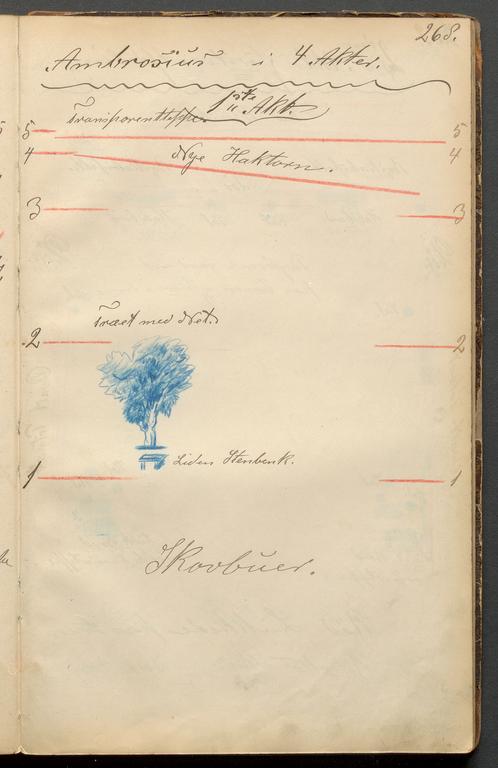 268.
Ambrosius i 4 Akter.
1ste Akt.
Transparenttæppe
5 5
4 Nye Haktorn. 4
3 3
Træet med Net.
2 2
Liden Stenbenk.
1 1
Skovbuer.